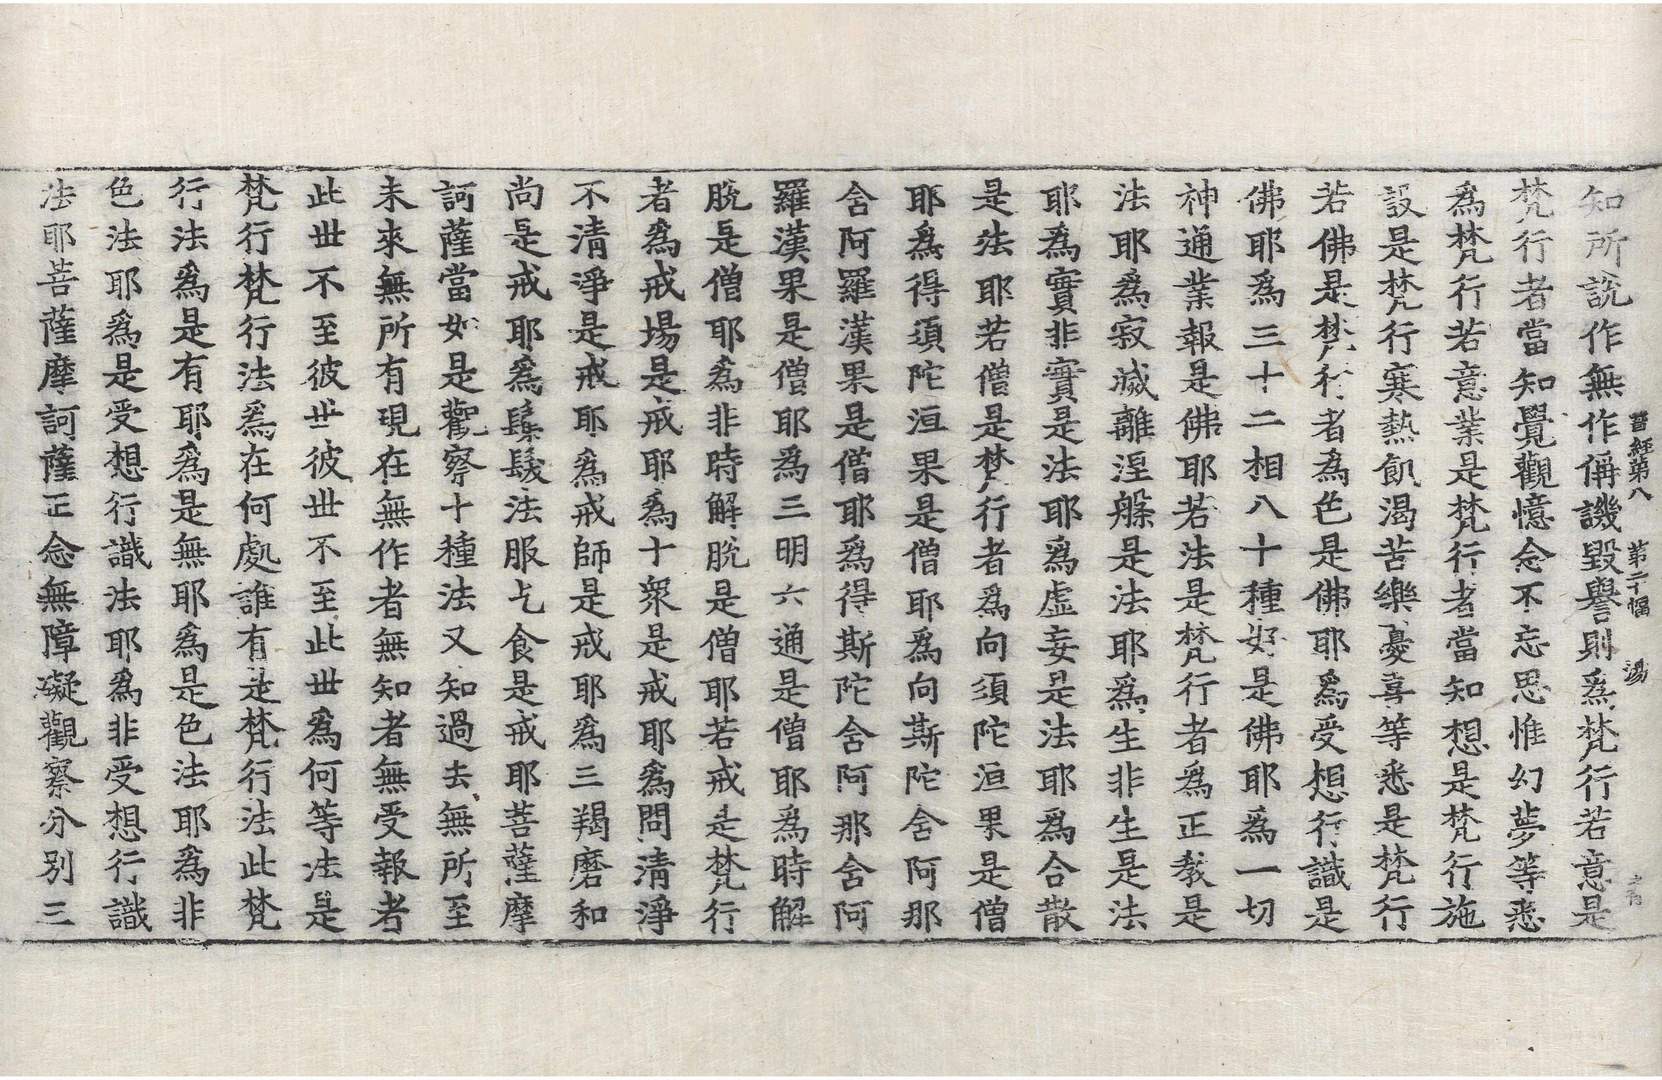 晋經第八 第二十幅 湯
知所說作無作偁譏毀譽則爲梵行若意是
梵行者當知覺觀憶念不忘思惟幻夢等悉
爲梵行若意業是梵行者當知想是梵行施
設是梵行寒熱飢渴苦樂憂喜等悉是梵行
若佛是梵行者為色是佛耶爲受想行識是
佛耶爲三十二相八十種好是佛耶爲一切
神通業報是佛耶若法是梵行者為正教是
法耶爲寂滅離涅槃是法耶爲生非生是法
耶爲實非實是法耶爲虛妄是法耶爲合散
是法耶若僧是梵行者為向須陀洹果是僧
耶爲得須陀洹果是僧耶爲向斯陀舍阿那
舍阿羅漢果是僧耶爲得斯陀舍阿那舍阿
羅漢果是僧耶爲三明六通是僧耶爲時解
脫是僧耶爲非時解脫是僧耶若戒是梵行
者爲戒場是戒耶爲十衆是戒耶爲問清淨
不清淨是戒耶爲戒師是戒耶爲三羯磨和
尚是戒耶爲髮法服乞食是戒耶菩薩摩
訶薩當如是觀察十種法又知過去無所至
未來無所有現在無作者無知者無受報者
此世不至彼世彼世不至此世爲何等法是
梵行梵行法爲在何處誰有是梵行法此梵
行法爲是有耶爲是無耶爲是色法耶爲非
色法耶爲是受想行識法耶爲非受想行識
法耶菩薩摩訶薩正念無障礙觀察分別三